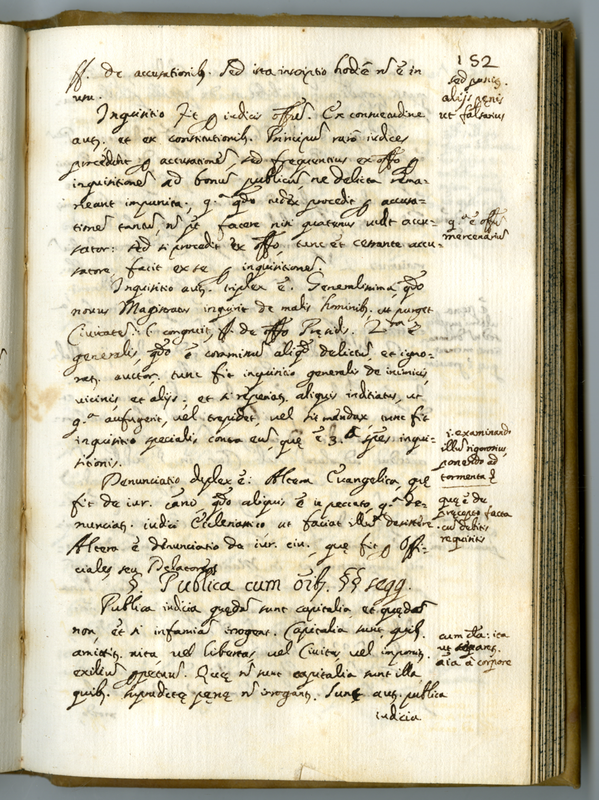 152
ff. de accusationib. Sed ista inscriptio hodie n̄ ē in
usu.
Inquisitio fit ꝑ iudicis officiū. Ex consuetudine
aut. et ex constitutionib. Principū raro iudices
procedūt ꝑ accusationē, sed frequentius ex offō ꝑ
inquisitionē ad bonū publicū ne delicta rema=
neant impunita. q.ª qdo iudex procedit ꝑ accusa=
tionē tantū, n̄ pt̄ facere nisi quatenus vult accu=
sator: sed si procedit ex offō, tunc et cessante accu=
satore, facit ex se ꝑ inquisitionē.
Inquisitio aut. triplex ē. Generalissima, qdo
novus Magistratus inquirit de malis hominib. ut purget
Civitatē. l. congruit, ff de offō Præsid. 2.ª ē
generalis, qdo ē commissū aliqd delictū, et igno=
rat. auctor. tunc fit inquisitio generalis de inimicis,
vicinis et alijs. et si reperiat. aliquis inditiatus, ut
q.ª aufugerit, vel trepidet, vel sit mendax tunc fit
inquisitio specialis contra eū, quę ē 3.ª spēs inqui=
sitionis.
Denunciatio duplex ē: Altera Evangelica, quę
fit de iur. canō. qdo aliquis ē ī peccato, q.ª de=
nunciat. iudici Ecclesiastico ut faciat illū desistere.
Altera ē denunciatio de iur. civ., quę fit ꝑ Offi=
ciales seu Delatores
§ Publica cum ōib. §§ seqq.
Publica iudicia quędā sunt capitalia et quędā
non, et si infamiā irrogent. Capitalia sunt quib.
amittit. vita vel libertas vel Civitas vel imponit.
exiliū ꝑpetuū. Quę n̄ sunt capitalia sunt illa
quib. supradictę pęnę n̄ irrogant. Sunt aut. publica
iudicia
sed punit.
alijs pęnis
ut falsarius
q.ª ē offiū
mercenariū
i. examinando
illū rigorosius
ponendo ad
tormenta
quę ē de
præcepto facta
cū debitis
requisitis
aīa a corpore